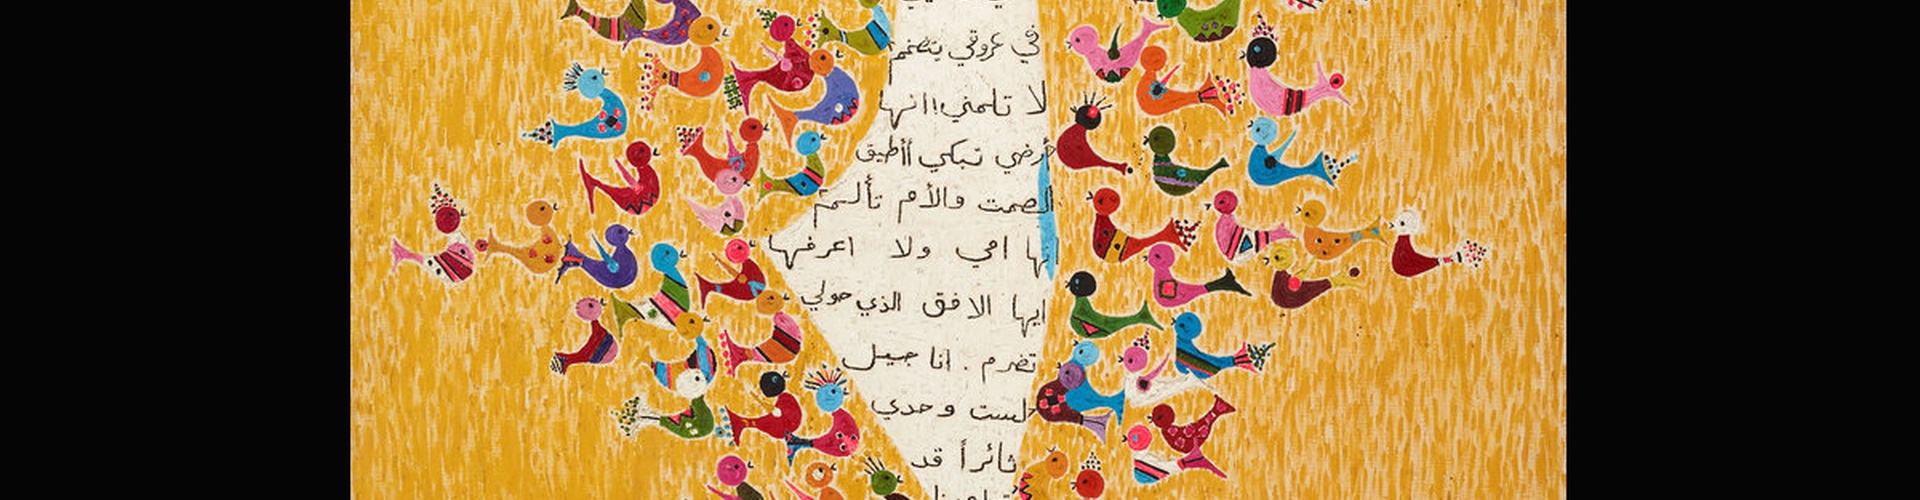 في عروقي يتضخم
لا تلمني!! انها
أرضي تبكي أأطيق
الصمت والأم تألم
انها امي ولا اعرفها
ايها الافق الذي حولي
تضرم . انا جيل
لست وحدي
ثائراً قد